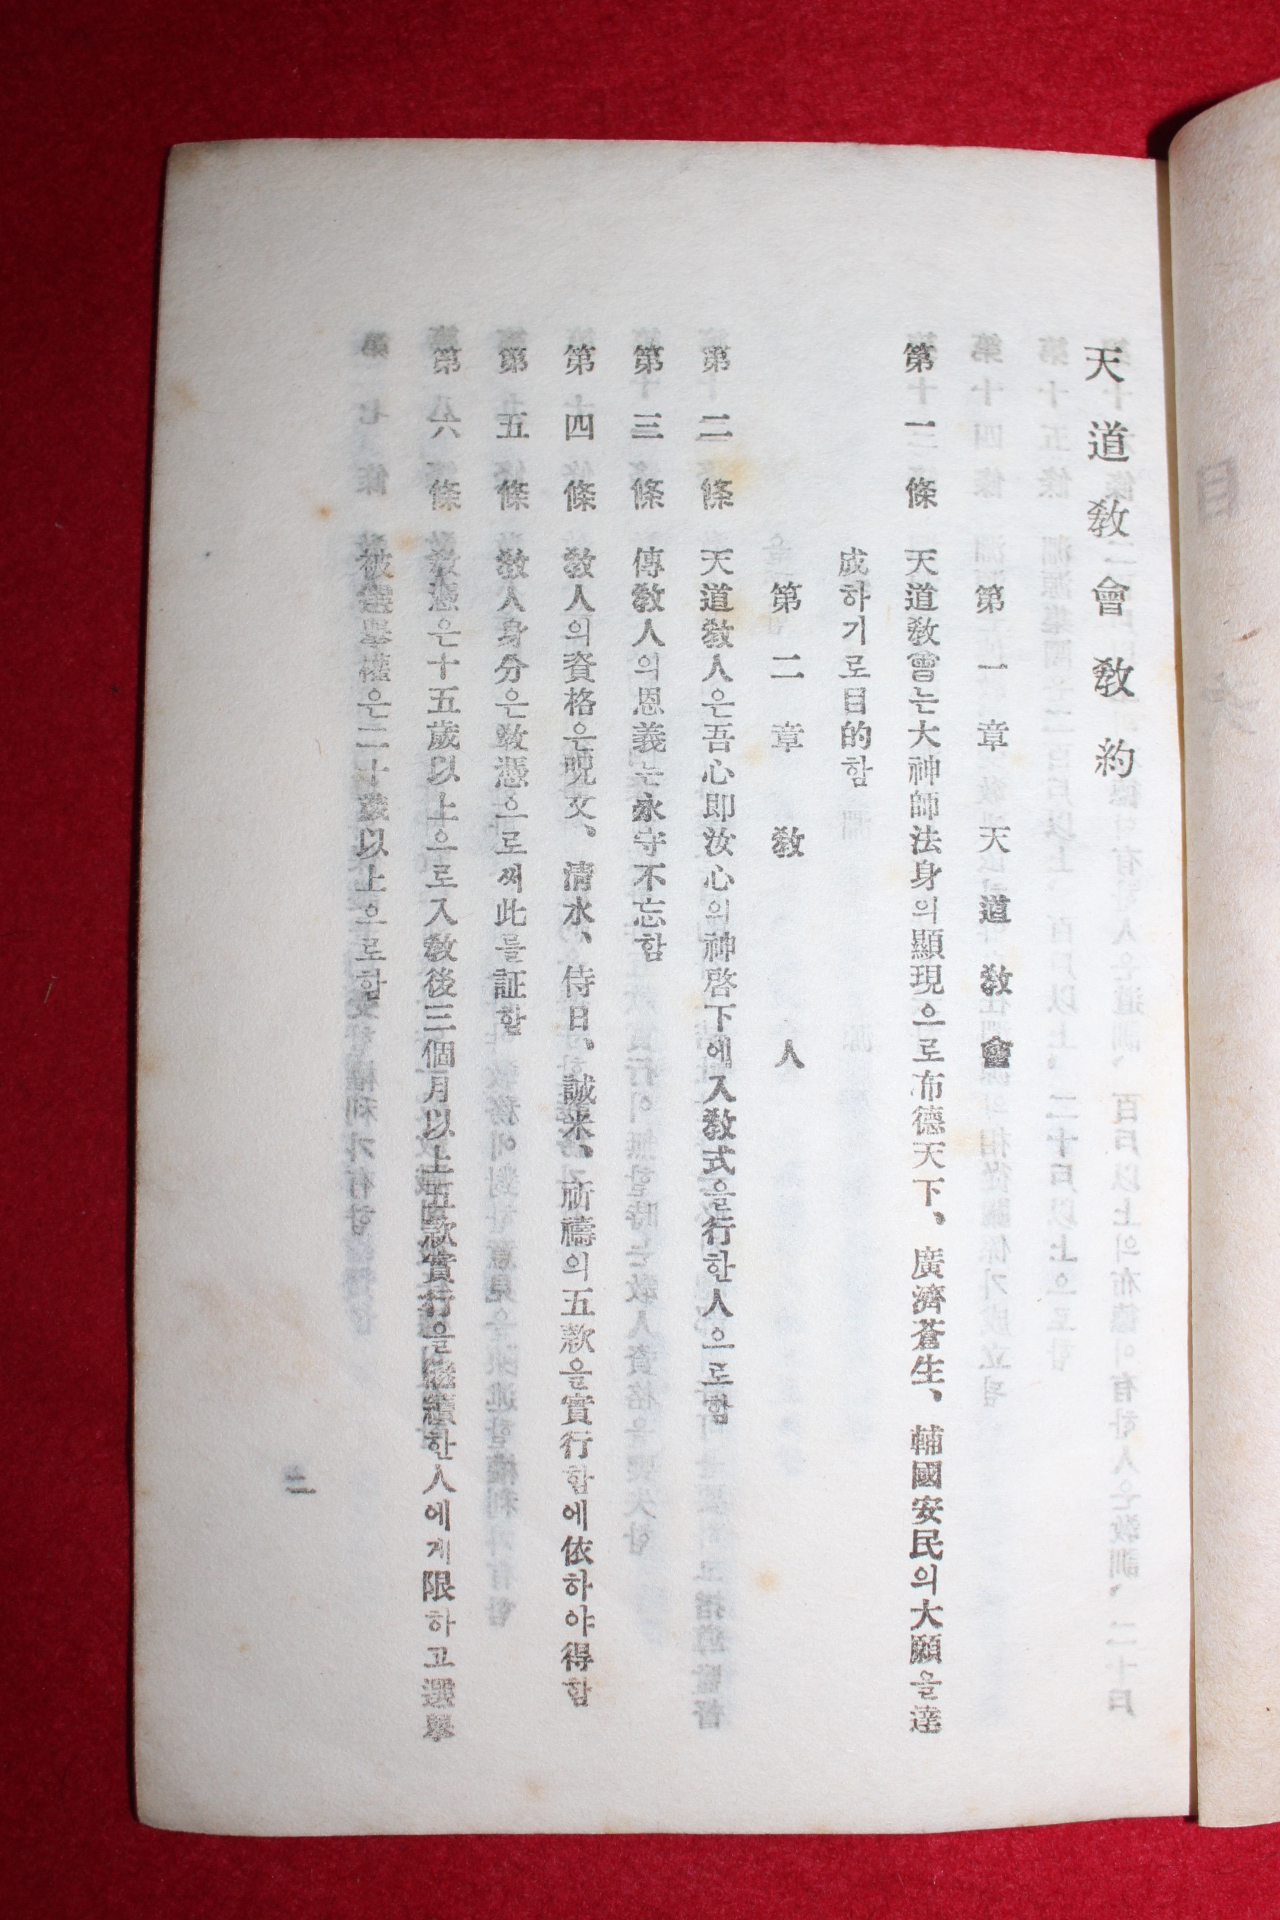 天道敎會敎約
第一章 天道敎會
第一條 天道敎會는大神師法身의顯現으로布德天下、廣濟蒼生、輔國安民의大願을達
成하기로目的함
第二章 敎人
第二條 天道敎人은吾心即汝心의神啓下에入敎式을行한人으로함
第三條 傳敎人의恩義는永守不忘함
第四條 敎人의資格은呪文、清水、侍日、誠米、祈禱의五款을實行함에依하야得함
第五條 敎人身分은敎憑으로써此를証함
第六條 敎憑은十五歲以上으로入敎後三個月以上五款實行을繼續한人에게限하고選擧
被選擧權은二十歲以上으로함
第七條
二